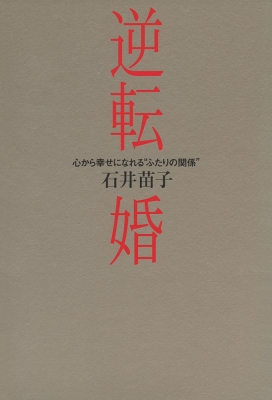 逆転婚
心から幸せになれる"ふたりの関係"
石井苗子